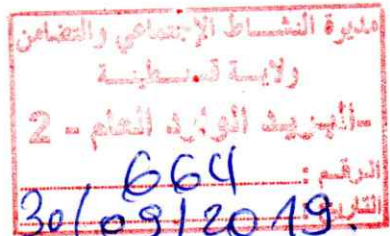 مديرية النشاط الإجتماعي والتضامن
ولاية قسنطينة
-البريد الوارد العام - 2
الرقم : 664
التاريخ : 30/09/2019.